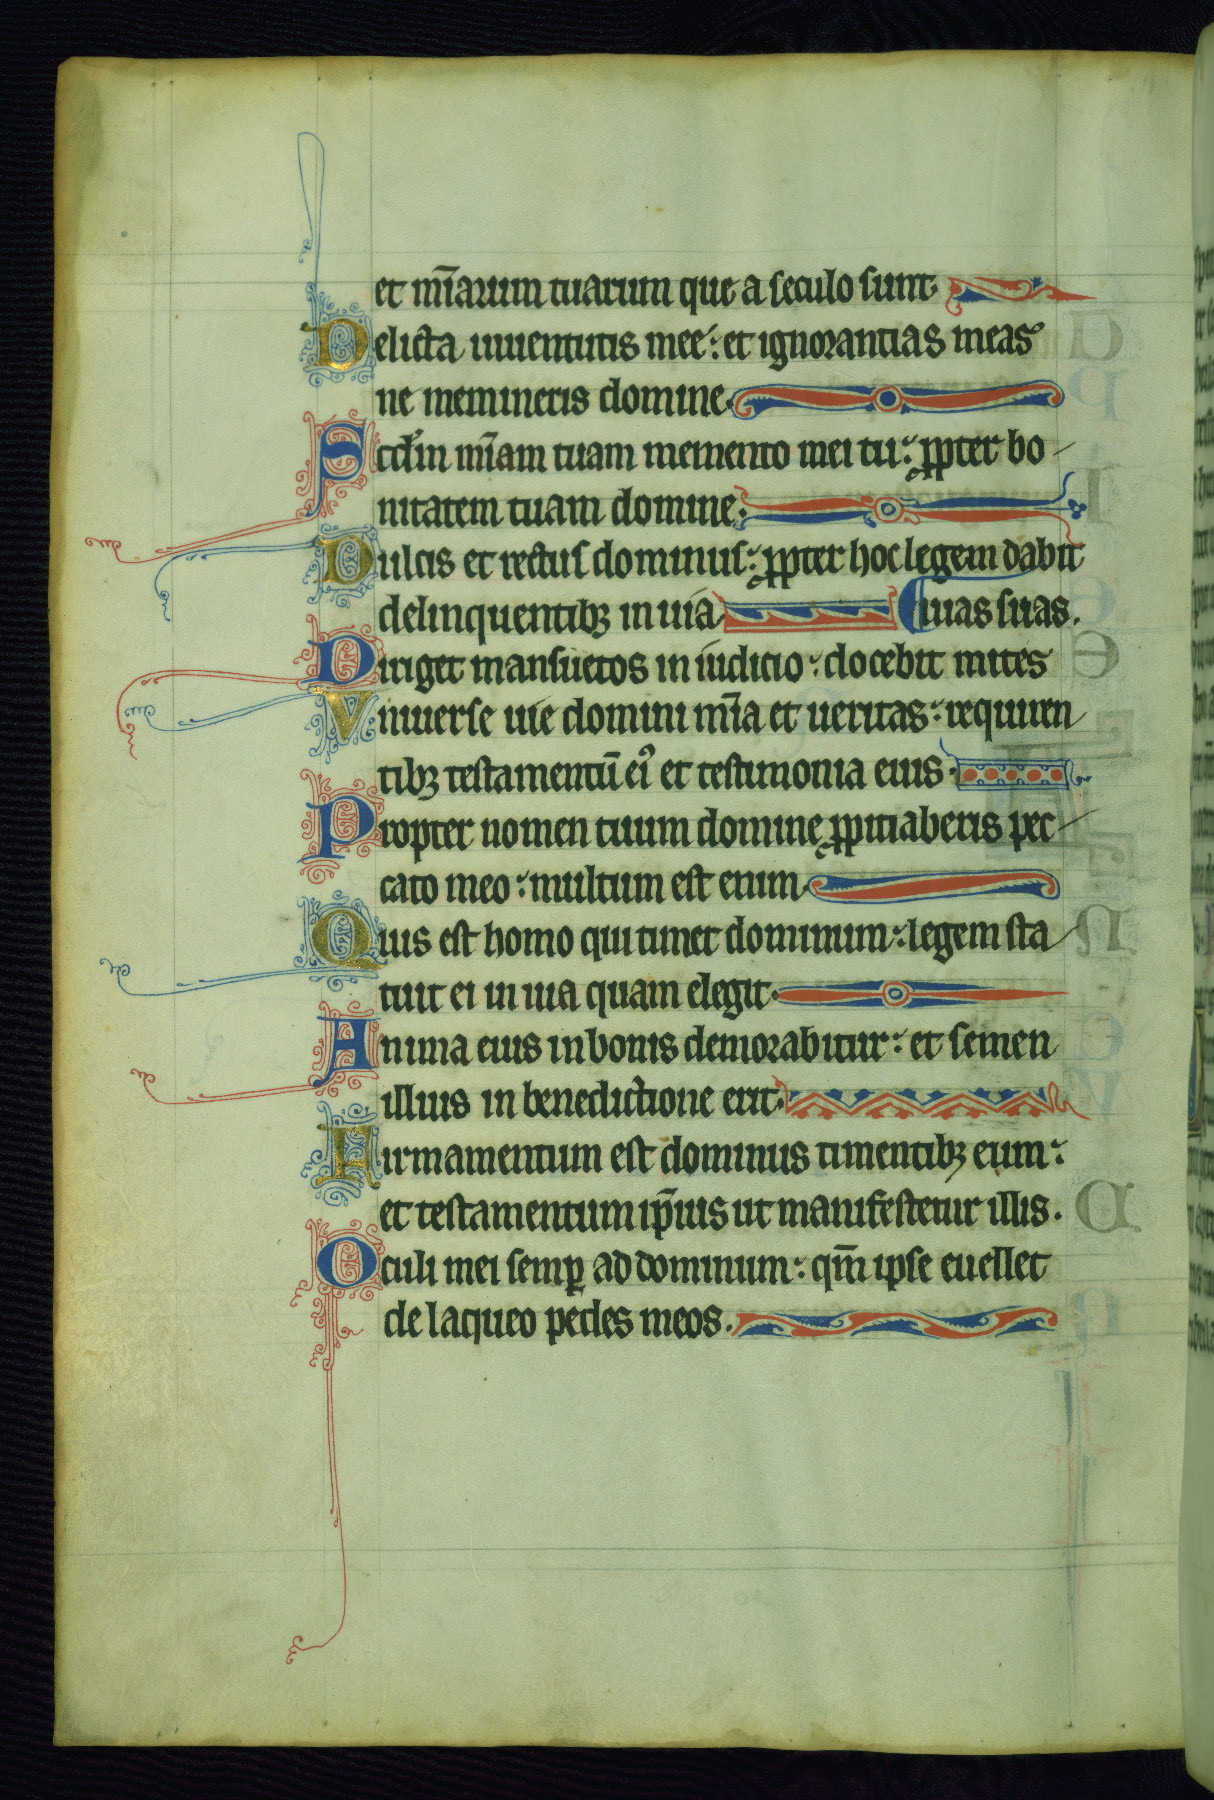 et mīarum tuarum que a seculo sunt
Delicta iuuentutis mee: et ignorantias meas
ne memineris domine.
Scdm̄ mīam tuam memento mei tu: ꝓpter bo
nitatem tuam domine.
Dulcis et rectus dominus: ꝓpter hoc legem dabit
delinquentibꝫ in uia uias suas.
Diriget mansuetos in iudicio: docebit mites
Uniuerse uie domini mīa et ueritas: requiren
tibꝫ testamentū eiꝰ et testimonia eius.
Propter nomen tuum domine ꝓpitiaberis pec
cato meo: multum est enim.
Quis est homo qui timet dominum: legem sta
tuit ei in uia quam elegit.
Anima eius in bonis demorabitur: et semen
illius in benedictione erit.
Firmamentum est dominus timentibꝫ eum:
et testamentum ip̄ius ut manifestetur illis.
Oculi mei semꝑ ad dominum: qm̄ ipse euellet
de laqueo pedes meos.